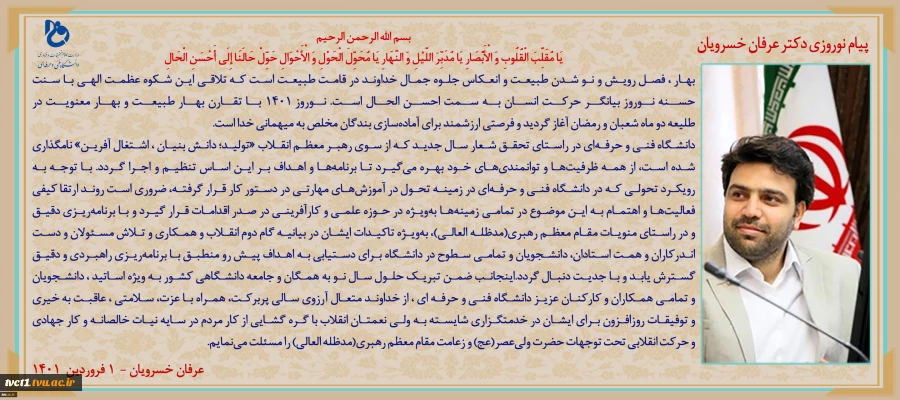 پیام نوروزی دکتر عرفان خسرویان
بسم الله الرحمن الرحیم
یَا مُقَلِّبَ الْقُلُوبِ وَ الْأَبْصَارِ یَا مُدَبِّرَ اللَّیْلِ وَ النَّهَارِ یَا مُحَوِّلَ الْحَوْلِ وَ الْأَحْوَالِ حَوِّلْ حَالَنَا إِلَى أَحْسَنِ الْحَالِ
بهار ، فصل رویش و نو شدن طبیعت و انعکاس جلوه جمال خداوند در قامت طبیعت است که تلاقی این شکوه عظمت الهی با سنت
حسنه نوروز بیانگر حرکت انسان به سمت احسن الحال است. نوروز ۱۴۰۱ با تقارن بهار طبیعت و بهار معنویت در
طلیعه دو ماه شعبان و رمضان آغاز گردید و فرصتی ارزشمند برای آماده‌سازی بندگان مخلص به میهمانی خدا است.
دانشگاه فنی و حرفه‌ای در راستای تحقق شعار سال جدید که از سوی رهبر معظم انقلاب «تولید؛ دانش بنیان ، اشتغال آفرین» نامگذاری
شده است، از همه ظرفیت‌ها و توانمندی‌های خود بهره می‌گیرد تا برنامه‌ها و اهداف بر این اساس تنظیم و اجرا گردد. با توجه به
رویکرد تحولی که در دانشگاه فنی و حرفه‌ای در زمینه تحول در آموزش‌های مهارتی در دستور کار قرار گرفته، ضروری است روند ارتقا کیفی
فعالیت‌ها و اهتمام به این موضوع در تمامی زمینه‌ها به‌ویژه در حوزه علمی و کارآفرینی در صدر اقدامات قرار گیرد و با برنامه‌ریزی دقیق
و در راستای منویات مقام معظم رهبری(مدظله العالی)، به‌ویژه تاکیدات ایشان در بیانیه گام دوم انقلاب و همکاری و تلاش مسئولان و دست
اندرکاران و همت استادان، دانشجویان و تمامی سطوح در دانشگاه برای دستیابی به اهداف پیش رو منطبق با برنامه‌ریزی راهبردی و دقیق
گسترش یابد و با جدیت دنبال گردد.اینجانب ضمن تبریک حلول سال نو به همگان و جامعه دانشگاهی کشور به ویژه اساتید ، دانشجویان
و تمامی همکاران و کارکنان عزیز دانشگاه فنی و حرفه ای ، از خداوند متعال آرزوی سالی پربرکت، همراه با عزت، سلامتی ، عاقبت به خیری
و توفیقات روزافزون برای ایشان در خدمتگزاری شایسته به ولی نعمتان انقلاب با گره گشایی از کار مردم در سایه نیات خالصانه و کار جهادی
و حرکت انقلابی تحت توجهات حضرت ولی‌عصر(عج) و زعامت مقام معظم رهبری(مدظله العالی) را مسئلت می‌نمایم.
عرفان خسرویان - ۱ فروردین ۱۴۰۱
tvct1.tvu.ac.ir